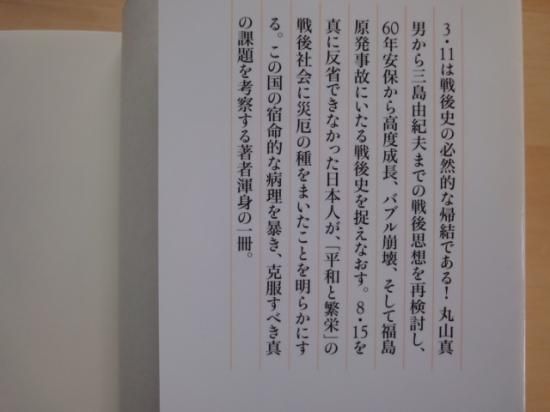 3・11は戦後史の必然的な帰結である！ 丸山真
男から三島由紀夫までの戦後思想を再検討し、
60年安保から高度成長、バブル崩壊、そして福島
原発事故にいたる戦後史を捉えなおす。8・15を
真に反省できなかった日本人が、「平和と繁栄」の
戦後社会に災厄の種をまいたことを明らかにす
る。この国の宿命的な病理を暴き、克服すべき真
の課題を考察する著者渾身の一冊。